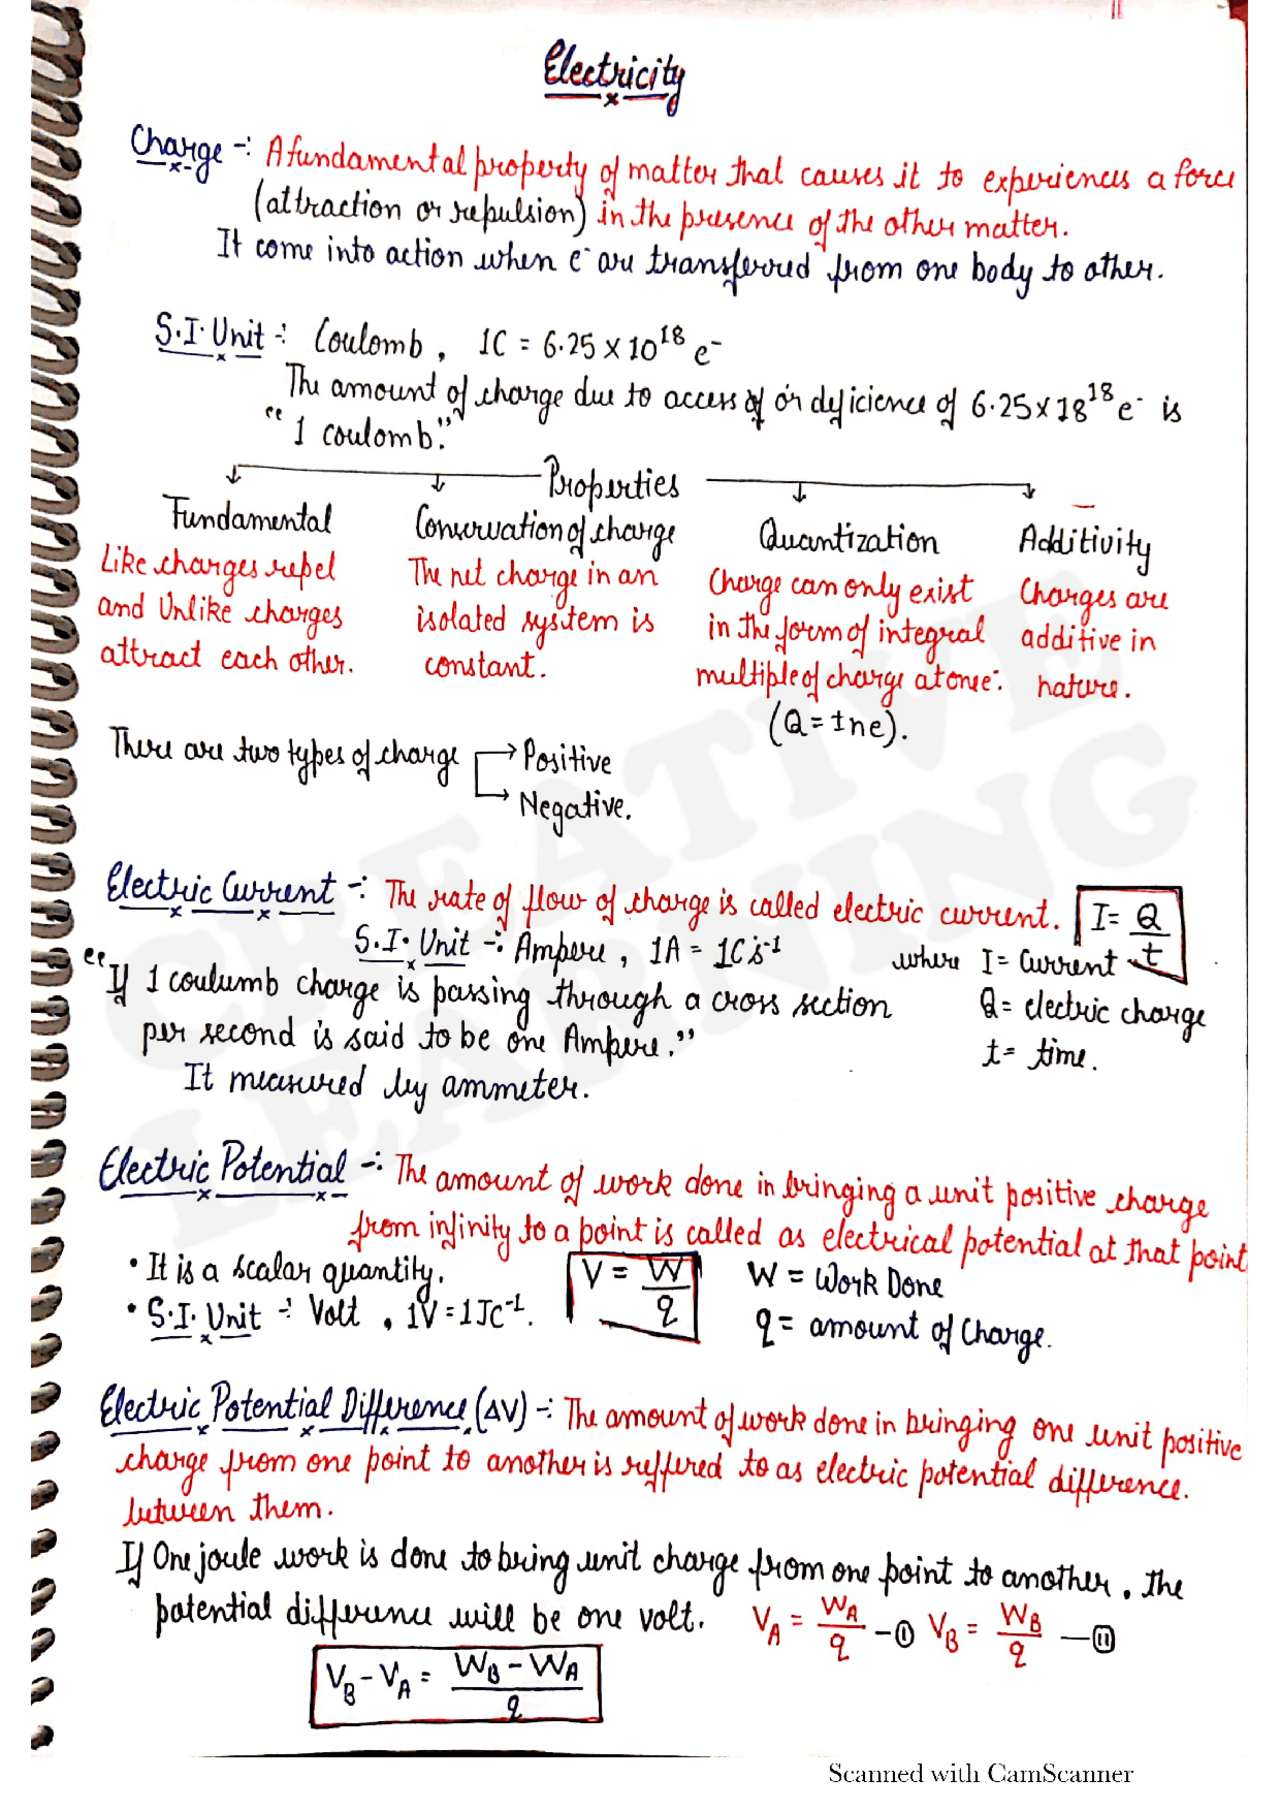 Electricity
Charge -: A fundamental property of matter that causes it to experiences a force
(attraction or repulsion) in the presence of the other matter.
It come into action when e⁻ are transferred from one body to other.
S.I. Unit -: Coulomb, 1C = 6.25 × 10¹⁸ e⁻
The amount of charge due to access of or deficience of 6.25 × 18¹⁸ e⁻ is
"1 coulomb."
Properties
Fundamental
Like charges repel
and Unlike charges
attract each other.
Conservation of charge
The net charge in an
isolated system is
constant.
Quantization
Charge can only exist
in the form of integral
multiple of charge at one:
(Q = ±ne).
Additivity
Charges are
additive in
nature.
There are two types of charge → Positive
→ Negative.
Electric Current -: The rate of flow of charge is called electric current. I = Q/t
S.I. Unit -: Ampere, 1A = 1Cs⁻¹ where I = Current
"If 1 coulumb charge is passing through a cross section Q = electric charge
per second is said to be one Ampere." t = time.
It measured by ammeter.
Electric Potential -: The amount of work done in bringing a unit positive charge
from infinity to a point is called as electrical potential at that point
• It is a scalar quantity. V = W/q W = Work Done
• S.I. Unit -: Volt, 1V = 1JC⁻¹. q = amount of Charge.
Electric Potential Difference (ΔV) -: The amount of work done in bringing one unit positive
charge from one point to another is reffered to as electric potential difference.
between them.
If One joule work is done to bring unit charge from one point to another, the
potential difference will be one volt. V_A = W_A/q –① V_B = W_B/q —⑪
V_B – V_A = W_B – W_A/q
CREATIVE
LEARNING
Scanned with CamScanner